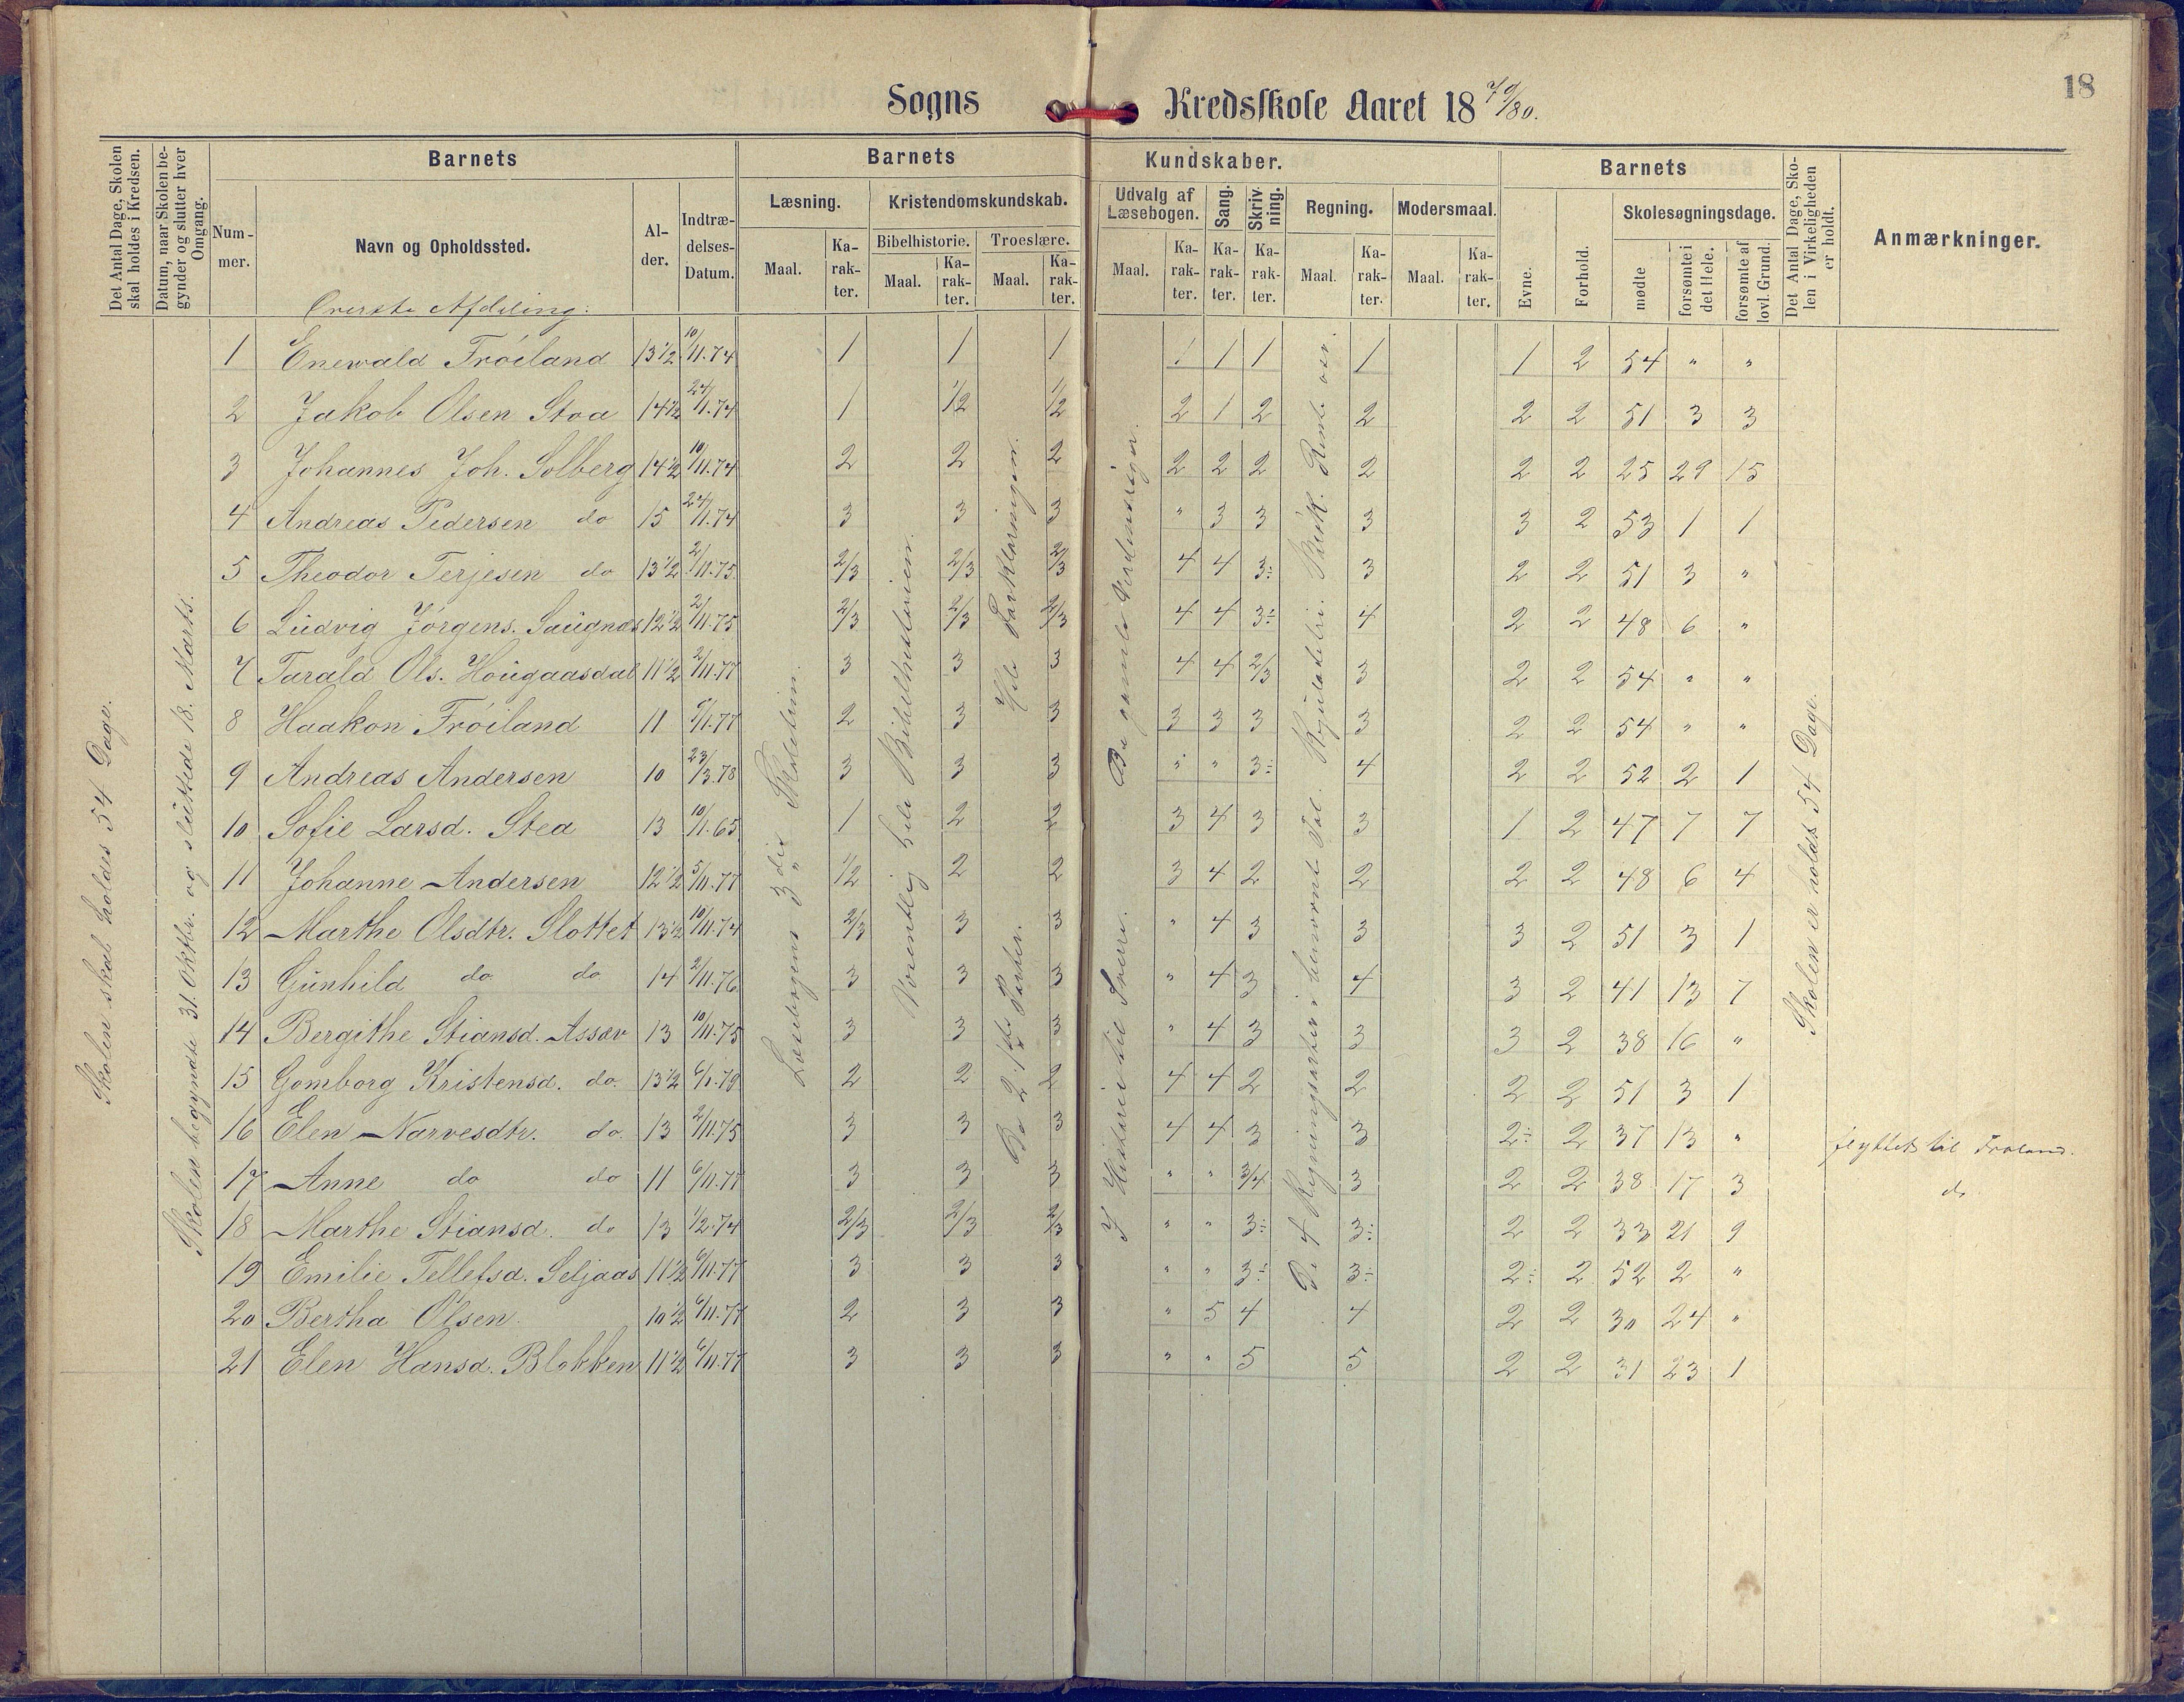 18
Sogns Kredsskole Aaret 1879/80.
Det Antal Dage, Skolen skal holdes i Kredsen.
Datum, naar Skolen begynder og slutter hver Omgang.
Barnets
Nummer.
Navn og Opholdssted.
Alder.
Indtrædelses-Datum.
Barnets Kundskaber.
Læsning.
Maal. Karakter.
Kristendomskundskab.
Bibelhistorie. Troeslære.
Maal. Karakter. Maal. Karakter.
Udvalg af Læsebogen.
Maal. Karakter.
Sang. Karakter.
Skrivning. Karakter.
Regning. Maal. Karakter.
Modersmaal. Maal. Karakter.
Barnets
Evne. Forhold.
Skolesøgningsdage.
mødte
forsømte i det Hele.
forsømte af lovl. Grund.
Det Antal Dage, Skolen i Virkeligheden er holdt.
Anmærkninger.
Øverste Afdeling:
Skolen skal holdes 54 Dage.
Skolen begyndte 31. Oktbr. og sluttede 18. Marts.
Læsebogens 3die Skoletrin.
Væsentlig hele Bibelhistorien.
Hele Forklaringen.
De 2 første Parter.
De gamle Nordensriger.
I Historie til Sverre.
De 4 Regningsarter i benævnt Tal. Regula de tri. Brøk. Rente
Skolen er holdt 54 Dage.
1 Enewald Fröiland 13½ 10/11.74 1 1 1 1 1 1 1 1 2 54 " "
2 Jakob Olsen Stoa 14½ 24/11.74 1 1/2 1/2 2 1 2 2 2 2 51 3 3
3 Johannes Joh. Solberg 14½ 10/11.74 2 2 2 2 2 2 2 2 2 25 29 15
4 Andreas Pedersen do 15 24/11.74 3 3 3 " 3 3 3 3 2 53 1 1
5 Theodor Terjesen do 13½ 2/11.75. 2/3 2/3 2/3 4 4 3÷ 3 2 2 51 3 "
6 Ludvig Jörgens. Saugnæs 12½ 2/11.75 2/3 2/3 2/3 4 4 3÷ 4 2 2 48 6 "
7 Tarald Ols. Hougaasdal 11½ 2/11.77 3 3 3 4 4 2/3 3 2 2 54 " "
8 Haakon Fröiland 11 9/1.77 2 3 3 3 3 3 3 2 2 54 " "
9 Andreas Andersen 10 23/3.78 3 3 3 " " 3÷ 4 2 2 52 2 1
10 Sofie Larsd. Stea 13 10/1.65 1 2 2 3 4 3 3 1 2 47 7 7
11 Johanne Andersen 12½ 5/11.77 1/2 2 2 3 4 2 2 2 2 48 6 4
12 Marthe Olsdtr. Slottet 13½ 10/11.74 2/3 3 3 " 4 3 3 3 2 51 3 1
13 Gunhild do do 14 2/11.76 3 3 3 " 4 3 4 3 2 41 13 7
14 Bergithe Stiansd. Assæv 13 10/11.75 3 3 3 " 4 3 3 3 2 38 16 "
15 Gomborg Kristensd. do. 13½ 6/1.79 2 2 2 4 4 2 2 2 2 51 3 1
16 Elen Narvesdtr. do. 13 2/11.75 3 3 3 4 4 3 3 2÷ 2 37 13 " flyttet til Froland.
17 Anne do do 11 6/11.77 3 3 3 " " 3/4 3 2 2 38 17 3 do
18 Marthe Stiansd. do 13 1/2.74 2/3 2/3 2/3 " " 3÷ 3÷ 2 2 33 21 9
19 Emilie Tellefsd. Seljaas 11½ 6/11.77 3 3 3 " " 3÷ 3÷ 2÷ 2 52 2 "
20 Bertha Olsen. 10½ 6/11.77 2 3 3 " 5 4 4 2 2 30 24 "
21 Elen Hansd. Blokken 11½ 6/11.77 3 3 3 " " 5 5 2 2 31 23 1